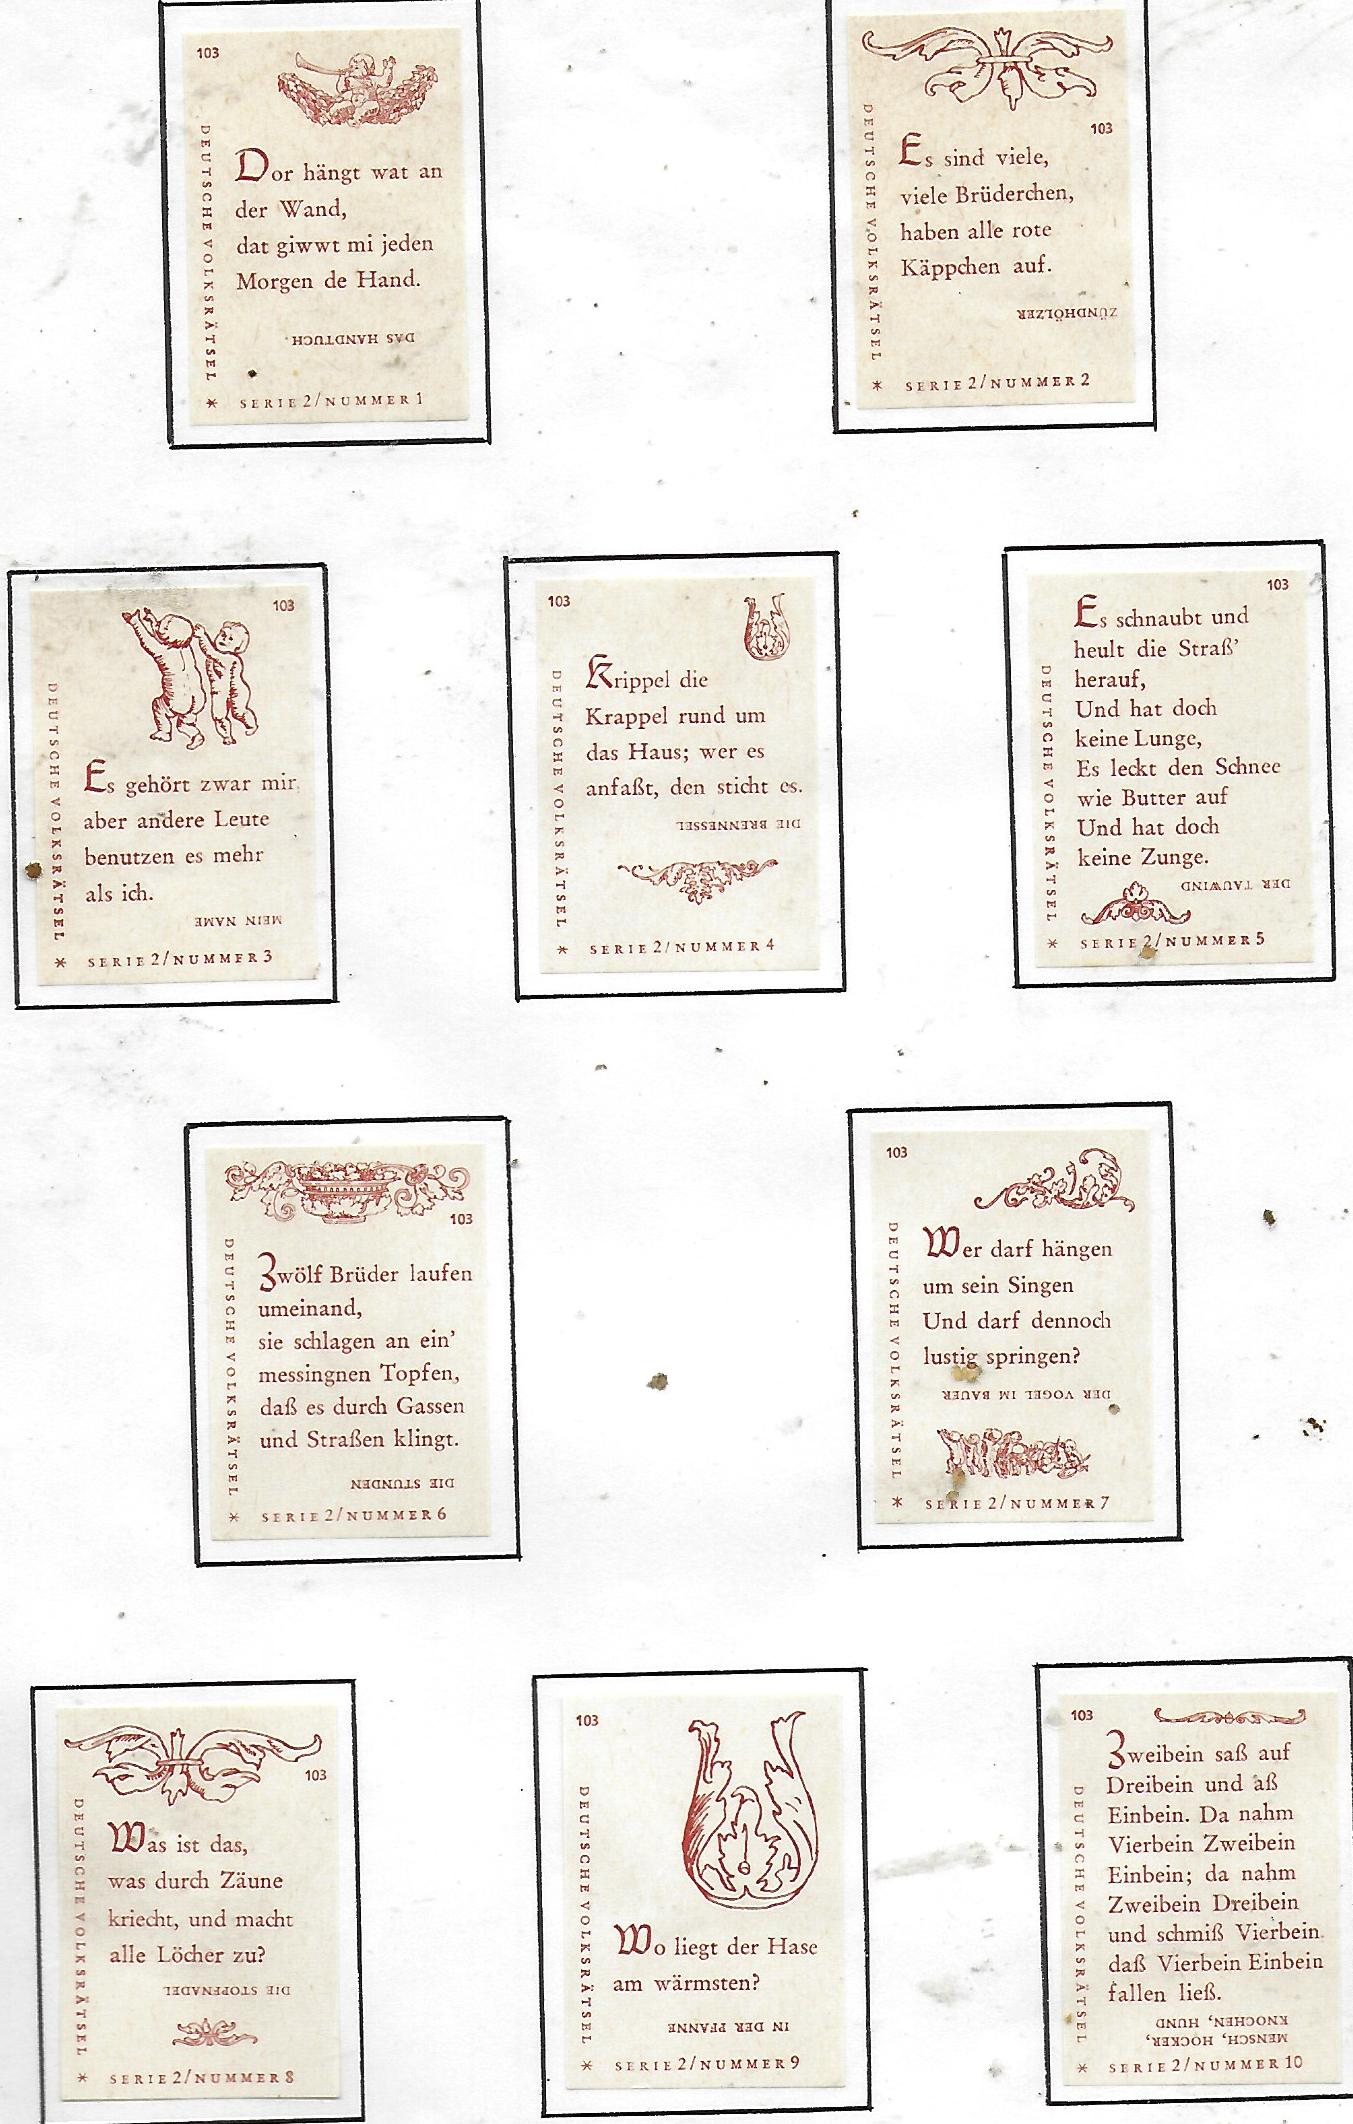 103
DEUTSCHE VOLKSRÄTSEL
Dor hängt wat an
der Wand,
dat giwwt mi jeden
Morgen de Hand.
DAS HANDTUCH
* SERIE 2/NUMMER 1
103
DEUTSCHE VOLKSRÄTSEL
Es sind viele,
viele Brüderchen,
haben alle rote
Käppchen auf.
ZÜNDHÖLZER
* SERIE 2/NUMMER 2
103
DEUTSCHE VOLKSRÄTSEL
Es gehört zwar mir,
aber andere Leute
benutzen es mehr
als ich.
MEIN NAME
* SERIE 2/NUMMER 3
103
DEUTSCHE VOLKSRÄTSEL
Krippel die
Krappel rund um
das Haus; wer es
anfaßt, den sticht es.
DIE BRENNESSEL
* SERIE 2/NUMMER 4
103
DEUTSCHE VOLKSRÄTSEL
Es schnaubt und
heult die Straß'
herauf,
Und hat doch
keine Lunge,
Es leckt den Schnee
wie Butter auf
Und hat doch
keine Zunge.
DER TAUWIND
* SERIE 2/NUMMER 5
103
DEUTSCHE VOLKSRÄTSEL
Zwölf Brüder laufen
umeinand,
sie schlagen an ein'
messingnen Topfen,
daß es durch Gassen
und Straßen klingt.
DIE STUNDEN
* SERIE 2/NUMMER 6
103
DEUTSCHE VOLKSRÄTSEL
Wer darf hängen
um sein Singen
Und darf dennoch
lustig springen?
DER VOGEL IM BAUER
* SERIE 2/NUMMER 7
103
DEUTSCHE VOLKSRÄTSEL
Was ist das,
was durch Zäune
kriecht, und macht
alle Löcher zu?
DIE STOPFNADEL
* SERIE 2/NUMMER 8
103
DEUTSCHE VOLKSRÄTSEL
Wo liegt der Hase
am wärmsten?
IN DER PFANNE
* SERIE 2/NUMMER 9
103
DEUTSCHE VOLKSRÄTSEL
Zweibein saß auf
Dreibein und aß
Einbein. Da nahm
Vierbein Zweibein
Einbein; da nahm
Zweibein Dreibein
und schmiß Vierbein
daß Vierbein Einbein
fallen ließ.
MENSCH, HOCKER,
KNOCHEN, HUND
* SERIE 2/NUMMER 10